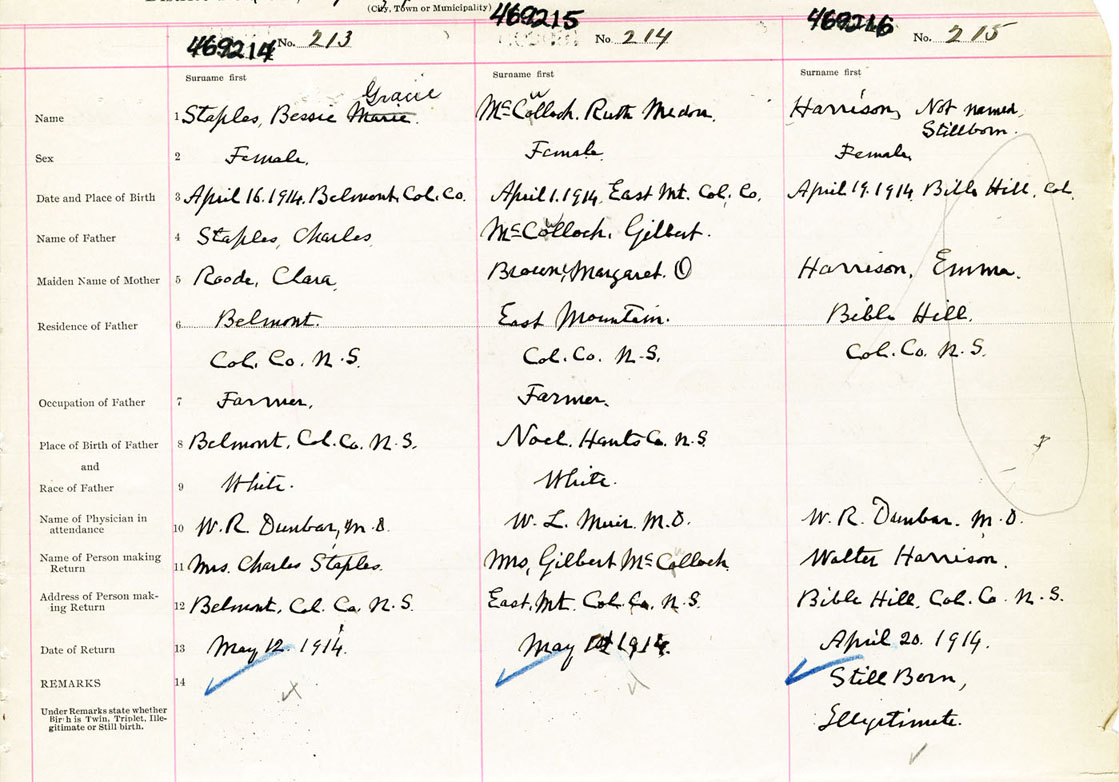 (City, Town or Municipality)
469214 No. 213
469215 No. 214
469216 No. 215
Surname first Surname first Surname first
Name 1 Staples, Bessie Marie Gracie McCollock. Ruth Harrison, Not named, Stillborn.
Sex 2 Female. Female. Female.
Date and Place of Birth 3 April 16. 1914. Belmont, Col. Co. April 1. 1914. East Mt. Col. Co. April 19. 1914. Bible Hill, Col.
Name of Father 4 Staples, Charles McCollock, Gilbert.
Maiden Name of Mother 5 Roode, Clara Brown, Margaret. O Harrison, Emma.
Residence of Father 6 Belmont. East Mountain. Bible Hill.
Col. Co. N.S. Col. Co. N.S. Col. Co. N.S.
Occupation of Father 7 Farmer. Farmer.
Place of Birth of Father 8 Belmont, Col. Co. N.S. Noel. Hants Co. N.S.
and
Race of Father 9 White. White.
Name of Physician in attendance 10 W. R. Dunbar, M.D. W. L. Muir. M.D. W. R. Dunbar. M.D.
Name of Person making Return 11 Mrs. Charles Staples. Mrs, Gilbert McCollock Walter Harrison.
Address of Person making Return 12 Belmont, Col. Co. N.S. East. Mt. Col. Co. N.S. Bible Hill, Col. Co. N.S.
Date of Return 13 May 12. 1914. May 1914. April 20. 1914.
REMARKS 14 Still Born,
Under Remarks state whether
Birth is Twin, Triplet, Ille-
gitimate or Still birth. Illegitimate.